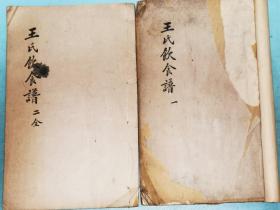 王氏飲食譜 二全
王氏飲食譜 一